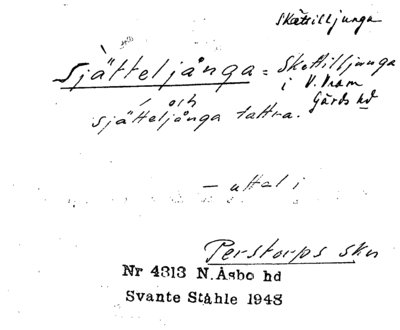 Skättilljunga
Sjätteljånga = Skettilljunga
i V. Vram
Gärds hd
och
sjätteljånga tattra.
– uttal i
Perstorps skn
Nr 4313 N.Åsbo hd
Svante Ståhle 1948